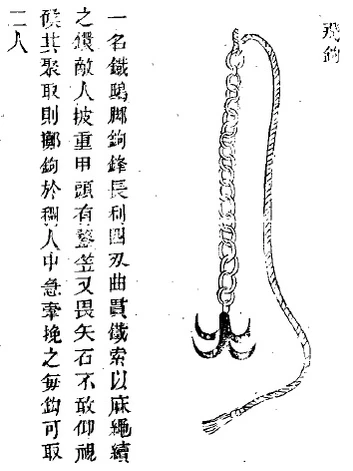 飛鉤
一名鐵鴟脚鉤鋒長利四刃曲貫鐵索以麻繩續
之鐶敵人披重甲頭有鍪笠又畏矢石不敢仰視
候其聚取則擲鉤於稠人中急牽挽之每鉤可取
二人